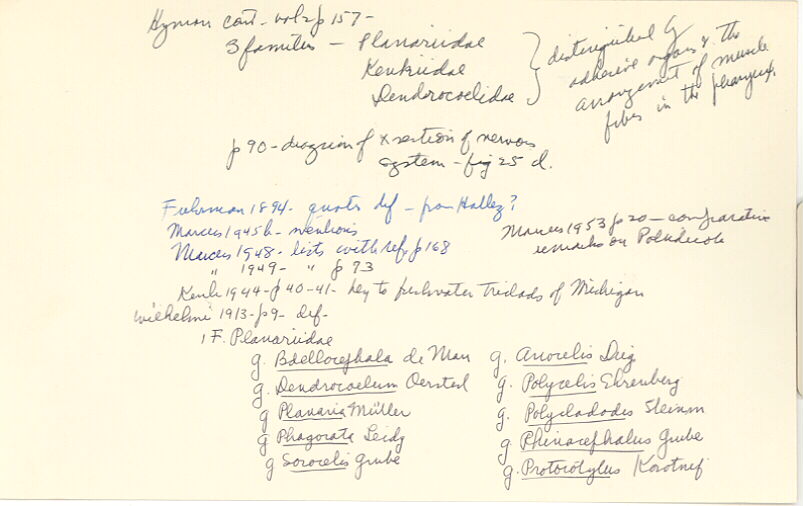 Hyman cont - vol 2 p 157 -
3 families - Planariidae
Kenkiidae
Dendrocoelidae
distinguished by
adhesive organs & the
arrangement of muscle
fibers in the pharynx.
p 90 - diagram of x section of nervous
system - fig 25 d.
Fuhrman 1894 - quotes def - from Hallez?
Marcus 1945b - mentions
Marcus 1948 - lists with ref p 168
" 1949 - " p 73
Marcus 1953 p 20 - comparative
remarks on Paludicola
Kenk 1944 - p 40 - 41 - key to freshwater Triclads of Michigan
Wilhelmi 1913 - p 9 - def -
1 F. Planariidae
g. Bdellocephala de Man
g. Dendrocoelum Oersted
g Planaria Müller
g Phagocata Leidy
g Sorocelis Grube
g. Anocelis Dieg
g. Polycelis Ehrenberg
g. Polycladodes Steinm
g Rhinacephalus Grube
g. Protocotylus Korotnef